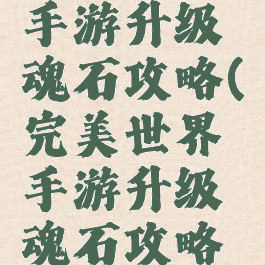 手游升级
魂石攻略(
完美世界
手游升级
魂石攻略